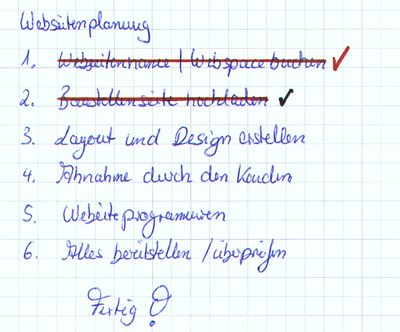 Webseitenplanung
1. Webseitenname / Webspace buchen
2. Baustellenseite hochladen
3. Layout und Design erstellen
4. Abnahme durch den Kunden
5. Webseite programmieren
6. Alles bereitstellen / überprüfen
Fertig